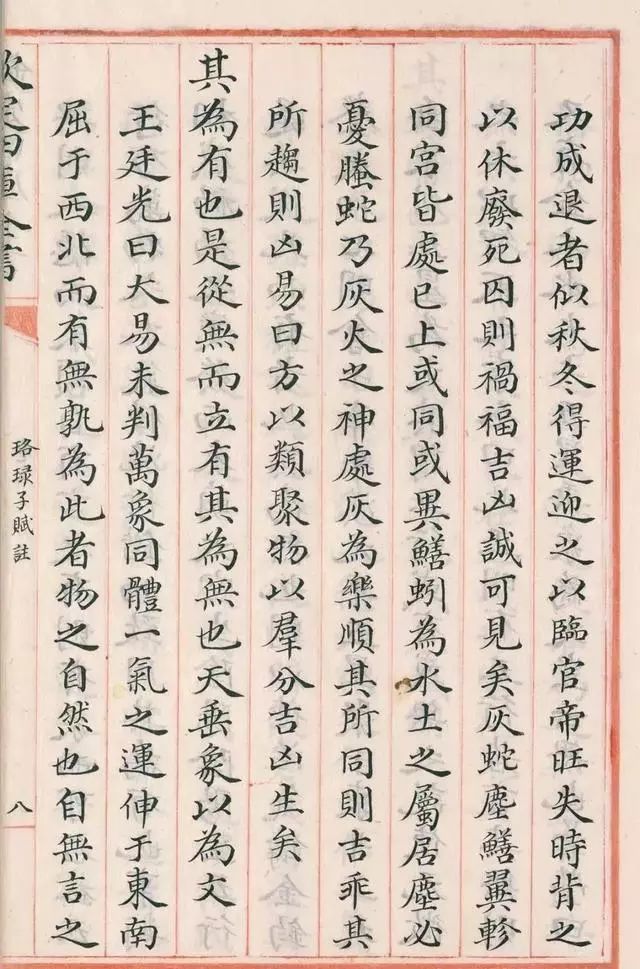 功成退者似秋冬得運迎之以臨官帝旺失時背之
以休廢死囚則禍福吉凶誠可見矣灰蛇塵鱔翼軫
同宮皆處巳上或同或異鱔蚓為水土之屬居塵必
憂螣蛇乃灰火之神處灰為樂順其所同則吉乖其
所趨則凶易曰方以類聚物以羣分吉凶生矣
其為有也是從無而立有其為無也天垂象以為文
王廷光曰大易未判萬象同體一氣之運伸于東南
屈于西北而有無孰為此者物之自然也自無言之
欽定四庫全書
珞琭子賦註
八